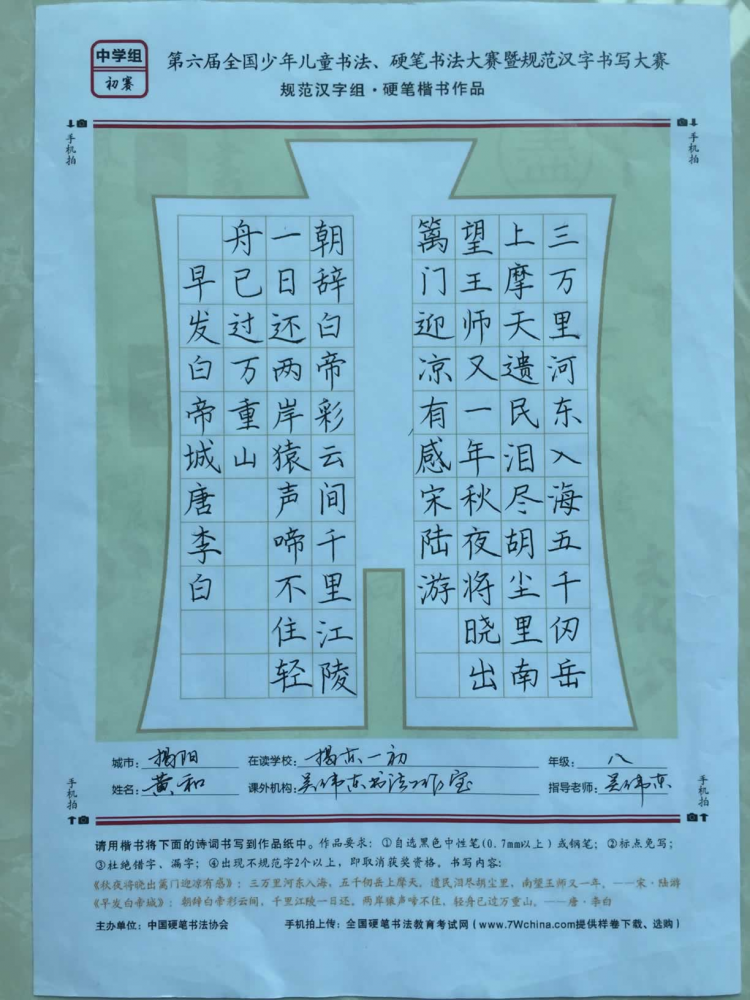 中学组
初赛
第六届全国少年儿童书法、硬笔书法大赛暨规范汉字书写大赛
规范汉字组·硬笔楷书作品
手机拍
手机拍
三万里河东入海五千仞岳
上摩天遗民泪尽胡尘里南
望王师又一年秋夜将晓出
篱门迎凉有感宋陆游
朝辞白帝彩云间千里江陵
一日还两岸猿声啼不住轻
舟已过万重山
早发白帝城唐李白
城市：揭阳 在读学校：揭东一初 年级：八
姓名：黄和 课外机构：吴伟东书法工作室 指导老师：吴伟东
手机拍
手机拍
请用楷书将下面的诗词书写到作品纸中。作品要求：①自选黑色中性笔(0.7mm以上)或钢笔；②标点免写；
③杜绝错字、漏字；④出现不规范字2个以上，即取消获奖资格。书写内容：
《秋夜将晓出篱门迎凉有感》：三万里河东入海，五千仞岳上摩天。遗民泪尽胡尘里，南望王师又一年。——宋·陆游
《早发白帝城》：朝辞白帝彩云间，千里江陵一日还。两岸猿声啼不住，轻舟已过万重山。——唐·李白
主办单位：中国硬笔书法协会 手机拍上传：全国硬笔书法教育考试网(www.7Wchina.com提供样卷下载、选购)